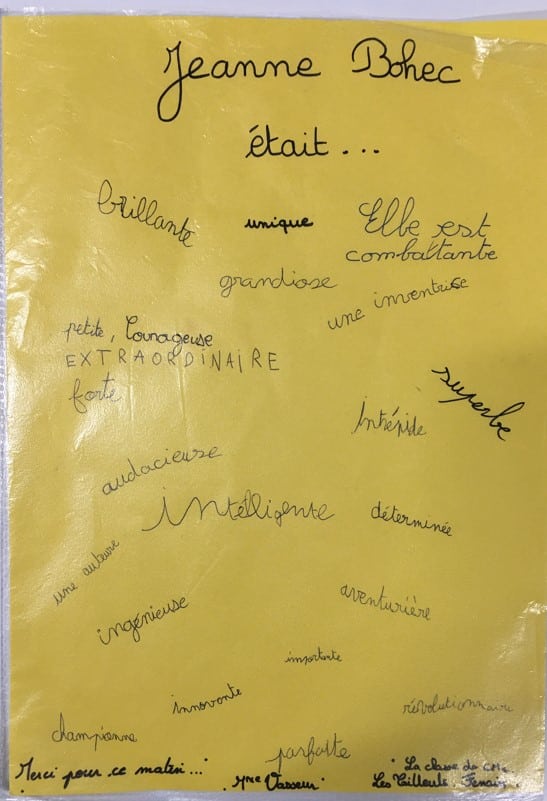 Jeanne Bohec
était ...
brillante
unique
Elle est
combattante
grandiose
une inventrice
petite, Courageuse
EXTRAORDINAIRE
forte
superbe
Intrépide
audacieuse
intelligente
déterminée
une auteure
aventurière
ingénieuse
importante
innovante
révolutionnaire
championne
parfaite
Merci pour ce matin..."
Mme Vasseur
La classe de
Les